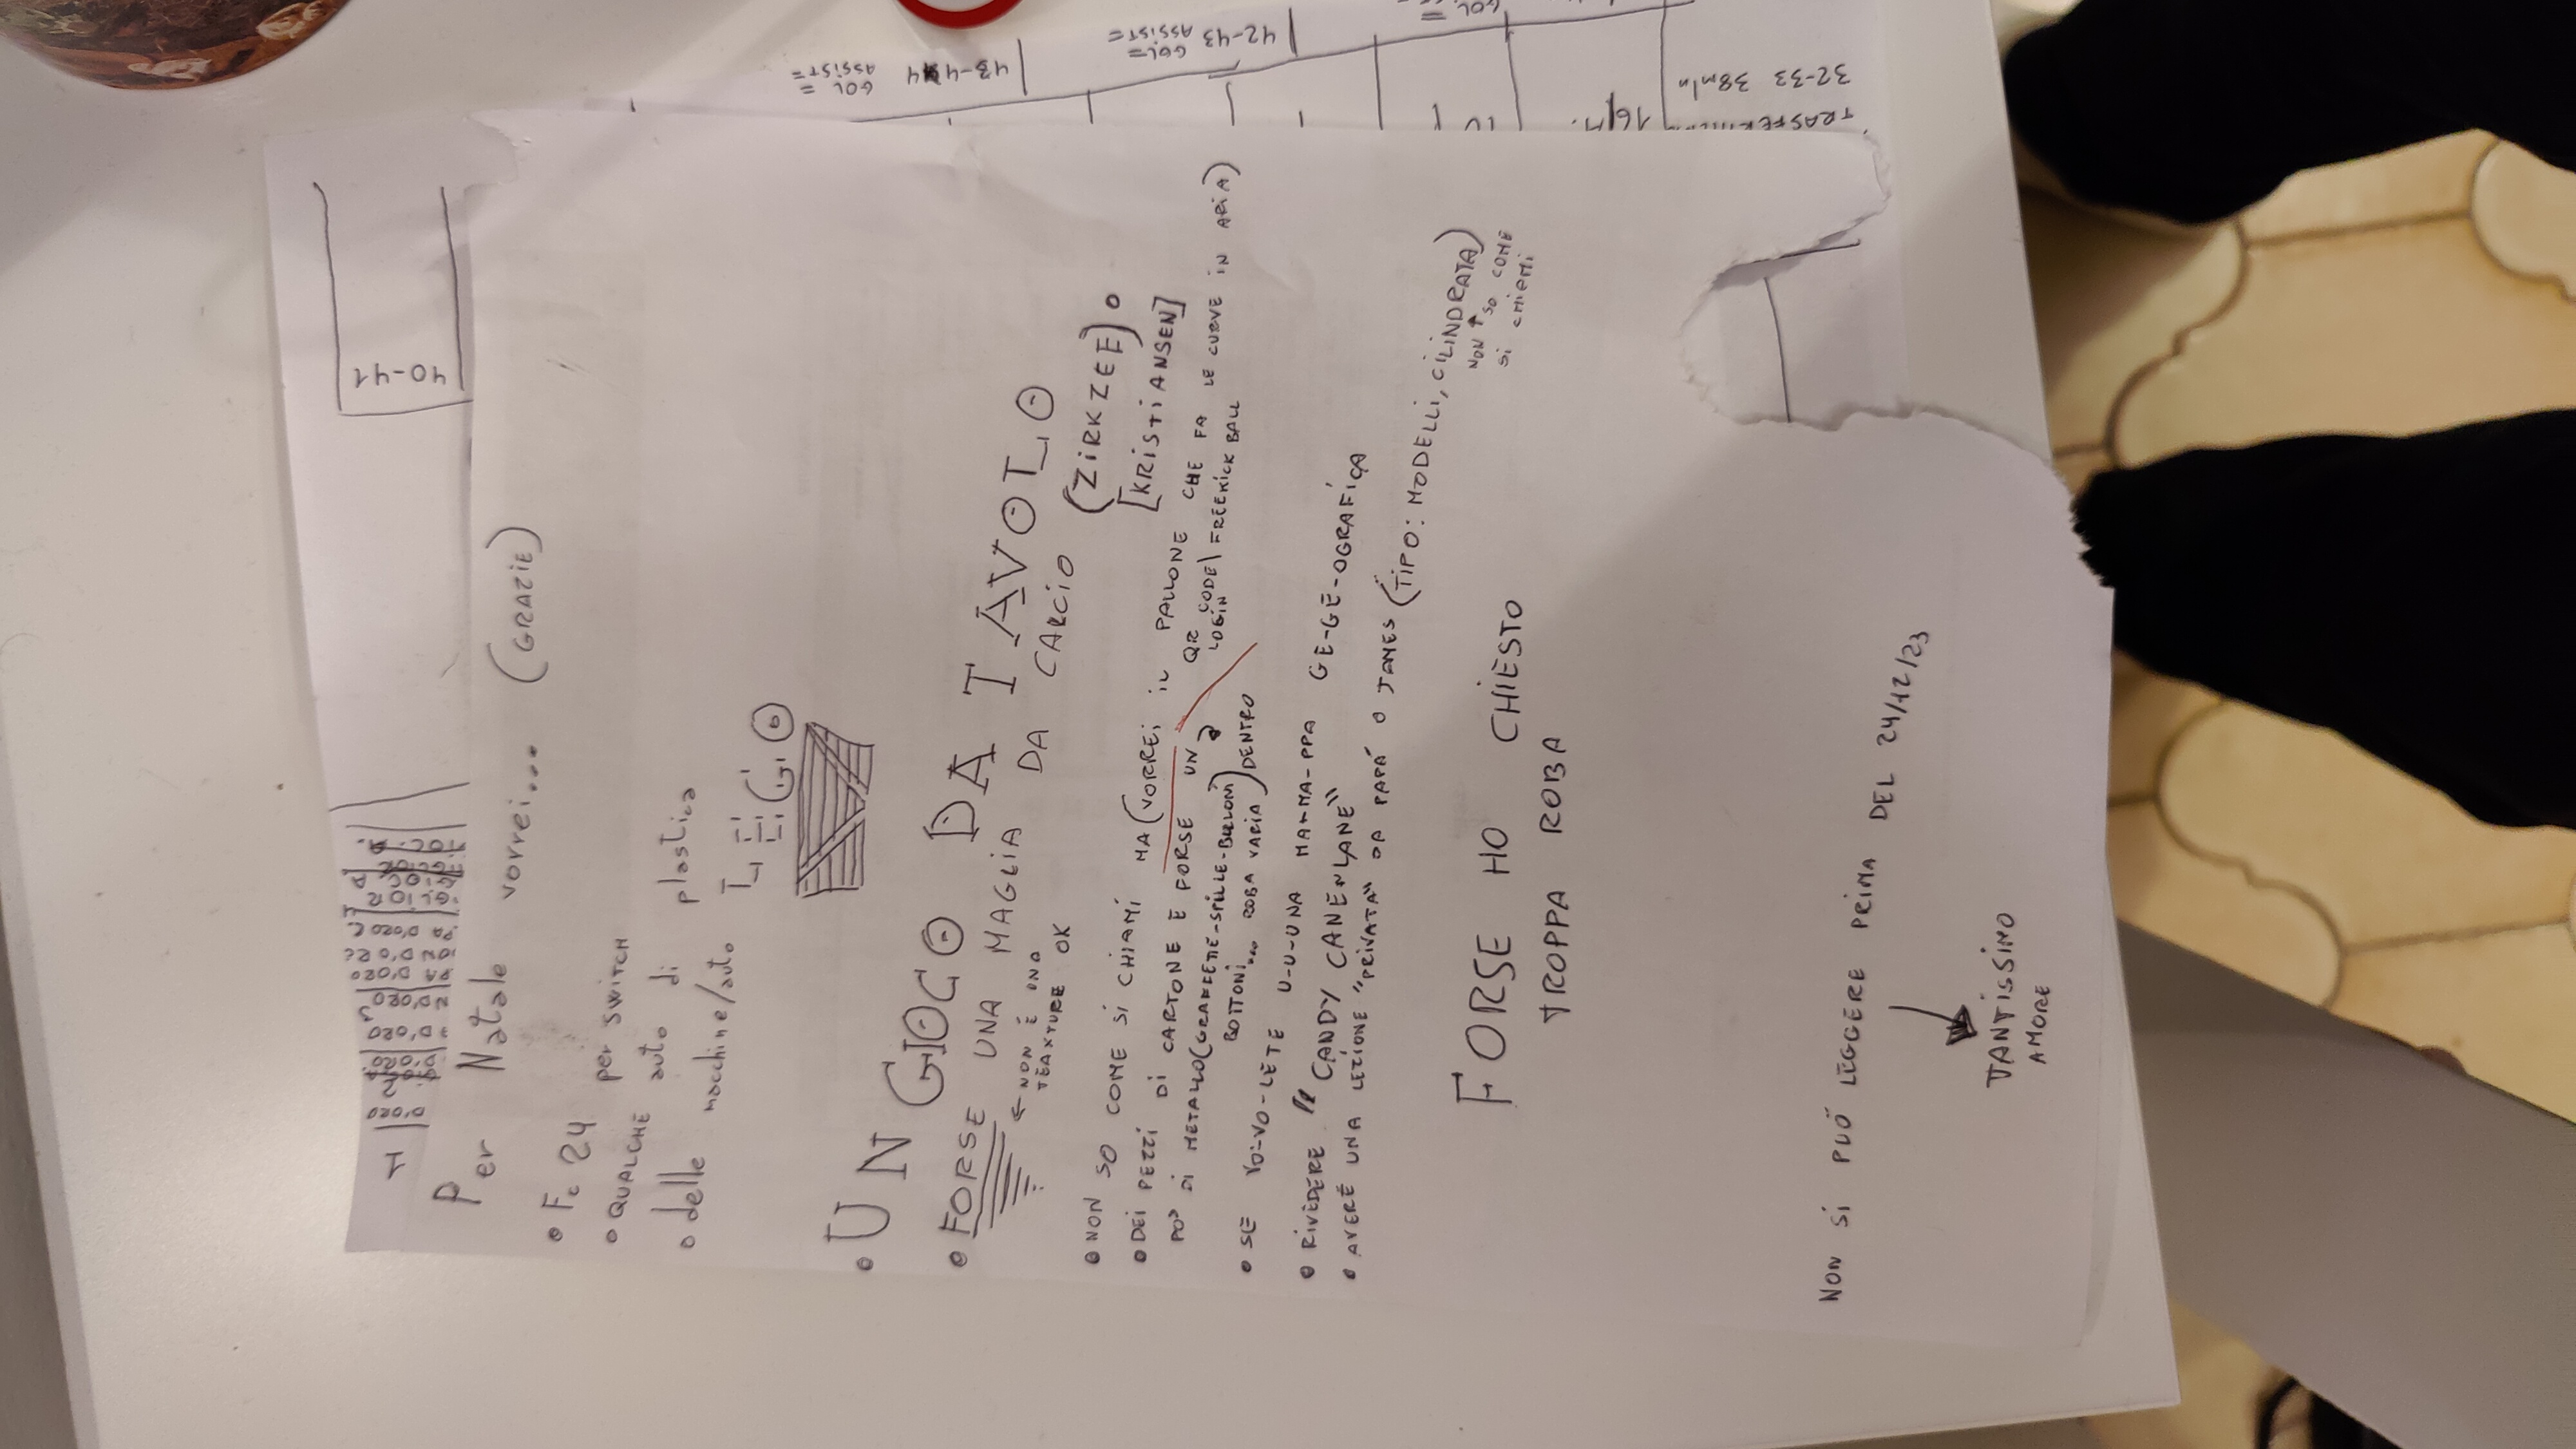 Per Natale vorrei... (GRAZIE)
• Fc 24 per SWITCH
• QUALCHE auto di plastica
• delle macchine/auto LEGO
• UN GIOCO DA TAVOLO
• FORSE UNA MAGLIA DA CARCIO (ZIRKZEE) O
[KRISTIANSEN]
← NON È UNA
TEAXTURE OK
• NON SO COME SI CHIAMI MA (VORREI IL PALLONE CHE FA LE CURVE IN ARIA)
QR CODE\ FREEKICK BALL
LOGIN
• DEI PEZZI DI CARTONE E FORSE UN
PO' DI METALLO (GRAFFETTE-SPILLE-BULLONI
BOTTONI... ROBA VARIA) DENTRO
• SE VO-VO-LETE U-U-UNA MA-MA-PPA GE-GE-OGRAFICA
• RIVEDERE "CANDY CANENLANE"
• AVERE UNA LEZIONE "PRIVATA" DA PAPÁ O JAMES (TIPO: MODELLI, CILINDRATA)
NON SO COME
SI CHIAMI
FORSE HO CHIESTO
TROPPA ROBA
NON SI PUÓ LEGGERE PRIMA DEL 24/12/23
TANTISSIMO
AMORE
40-41
43-44
GOL =
ASSIST =
42-43
GOL =
ASSIST =
GOL =
32-33 38mln
16/M.